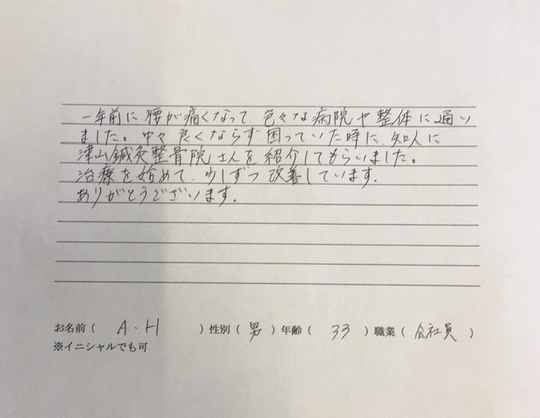 一年前に腰が痛くなって、色々な病院や整体に通い
ました。中々良くならず困っていた時に、知人に
津山鍼灸整骨院さんを紹介してもらいました。
治療を始めて、少しずつ改善しています。
ありがとうございます。
お名前（ A・H ）性別（ 男 ）年齢（ 33 ）職業（ 会社員 ）
※イニシャルでも可